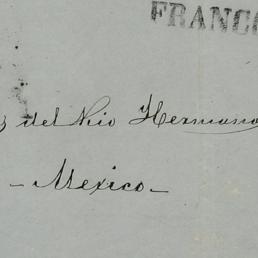 FRANCO
del Rio Hermano
- Mexico -